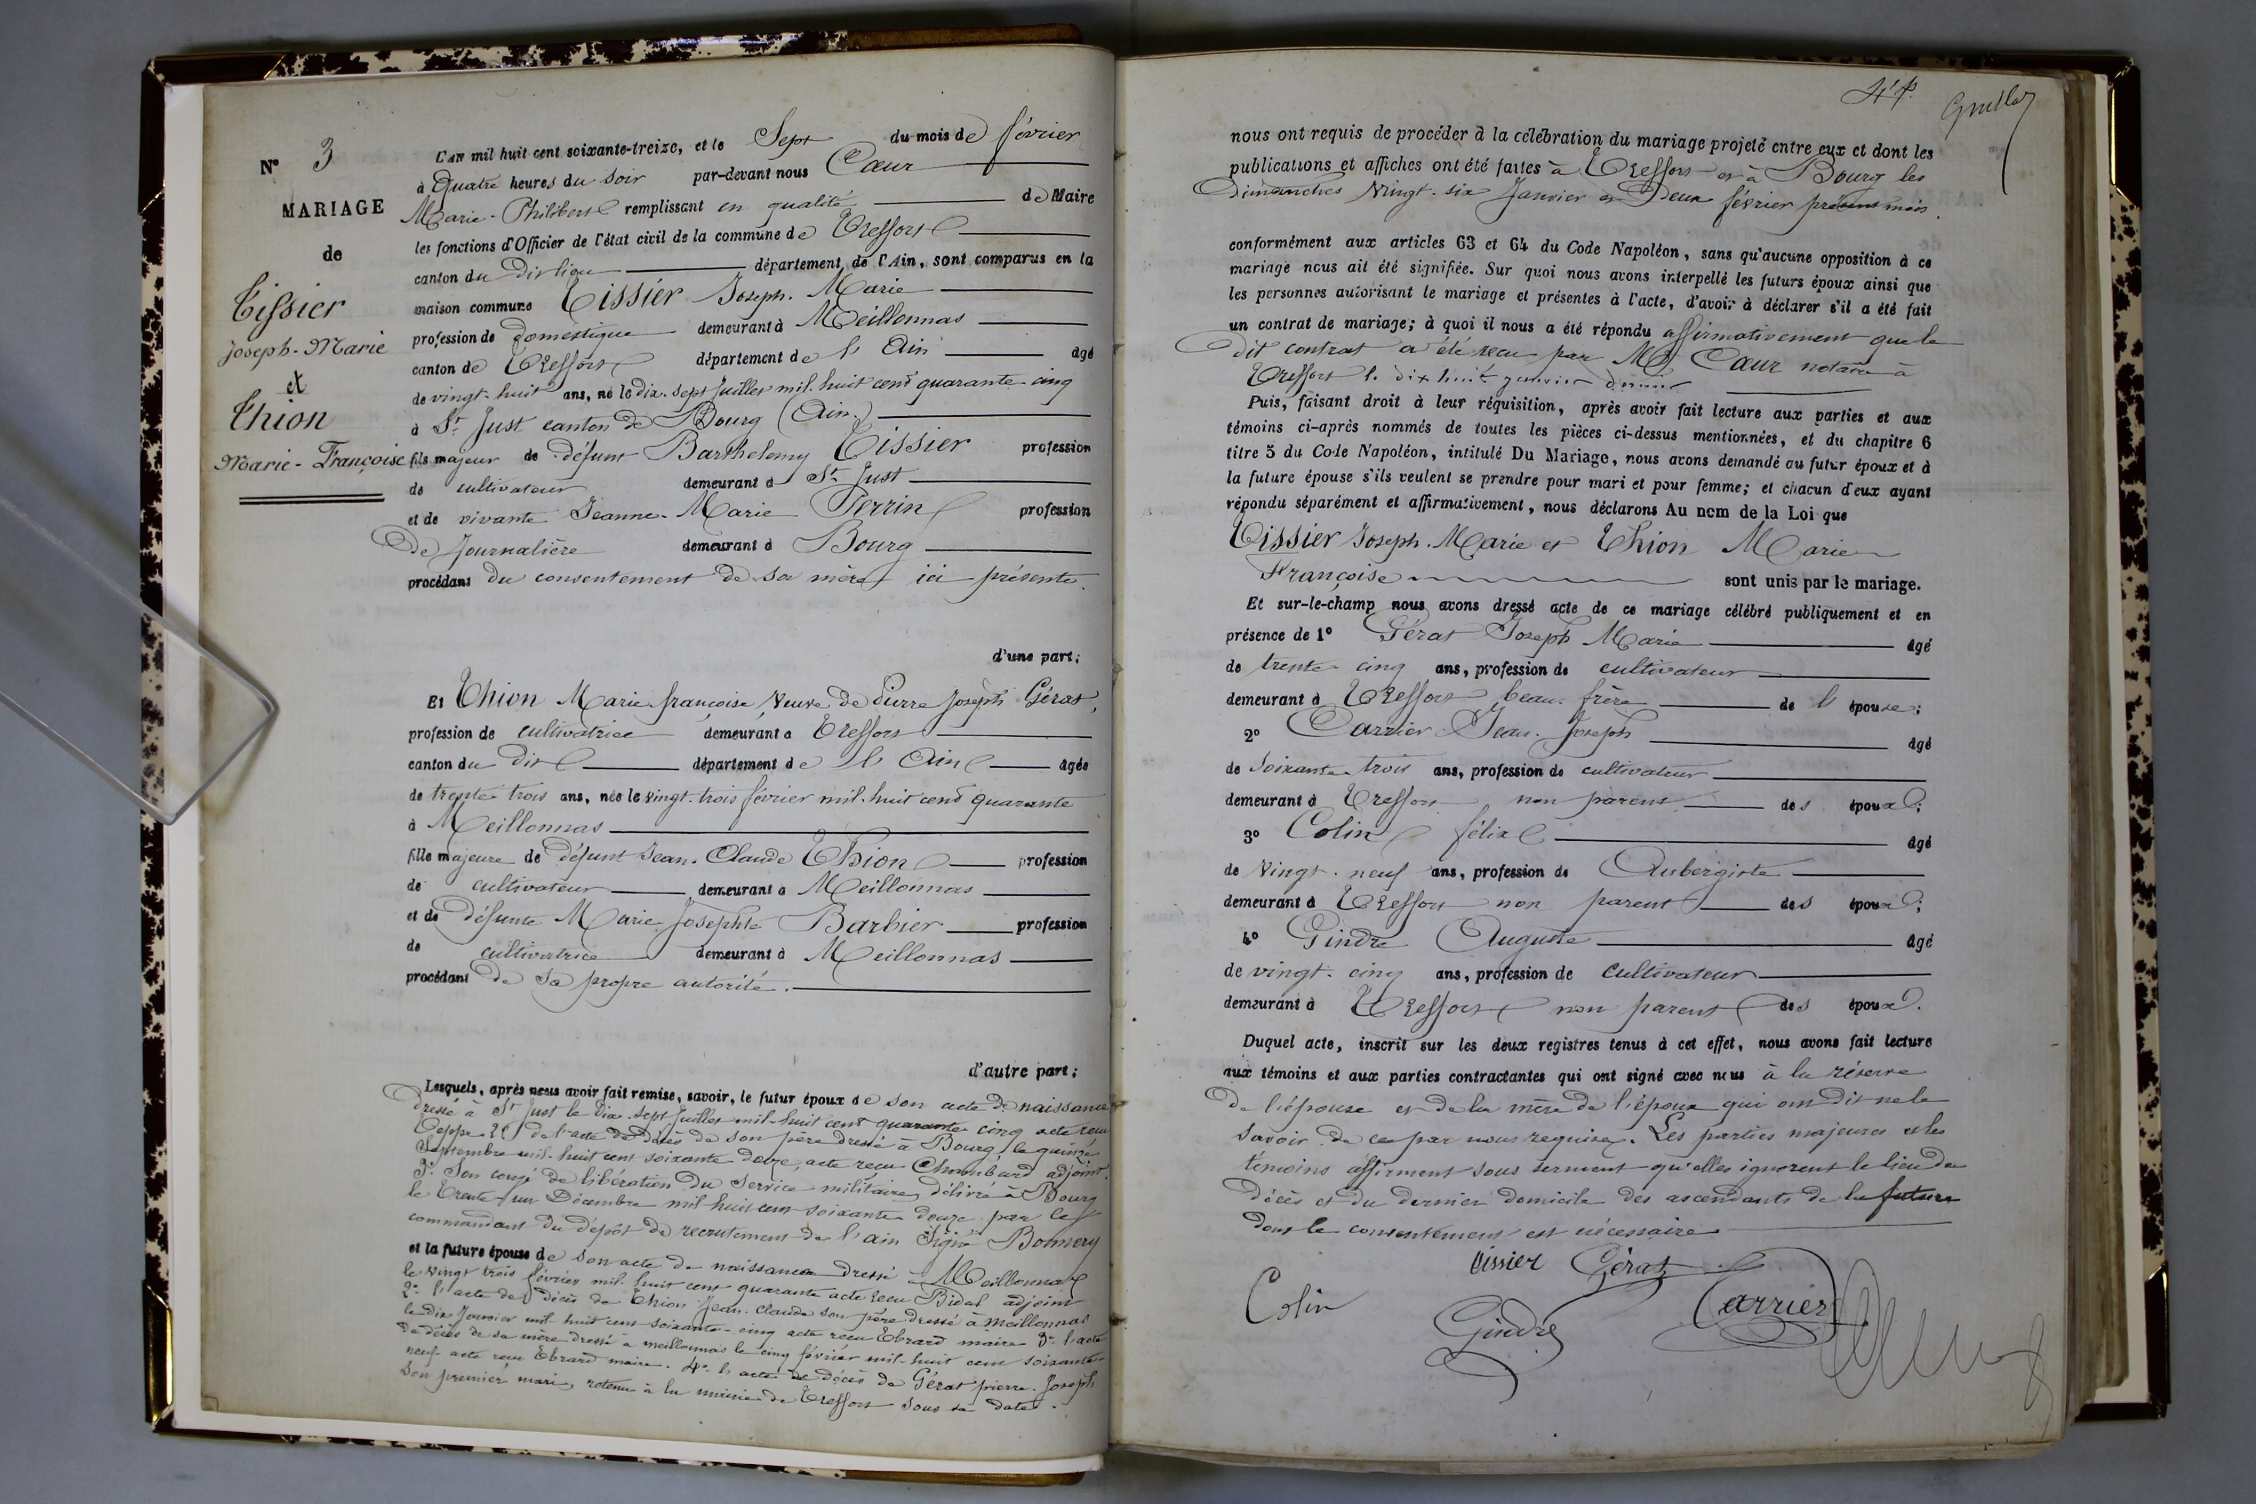 N° 3
MARIAGE
de
Tissier
Joseph-Marie
et
Thion
Marie-Françoise
L'AN mil huit cent soixante-treize, et le Sept du mois de février
à Quatre heures du soir par-devant nous Cœur
Marie-Philibert remplissant en qualité de Maire
les fonctions d'Officier de l'état civil de la commune de Treffort
canton du dit lieu département de l'Ain, sont comparus en la
maison commune Tissier Joseph-Marie
profession de domestique demeurant à Meillonnas
canton de Treffort département de l'Ain âgé
de vingt-huit ans, né le dix-sept juillet mil-huit cent quarante-cinq
à St Just canton de Bourg (Ain)
fils majeur de défunt Barthelemy Tissier profession
de cultivateur demeurant à St Just
et de vivante Jeanne-Marie Perrin profession
De Journalière demeurant à Bourg
procédant du consentement de sa mère ici présente.
d'une part;
Et Thion Marie françoise, Veuve de Pierre Joseph Gérat,
profession de cultivatrice demeurant à Treffort
canton du dit département de l'Ain âgée
de trente trois ans, née le vingt-trois février mil-huit cent quarante
à Meillonnas
fille majeure de défunt Jean-Claude Thion profession
de cultivateur demeurant à Meillonnas
et de défunte Marie-Josephte Barbier profession
de cultivatrice demeurant à Meillonnas
procédant de sa propre autorité.
d'autre part;
Lesquels, après nous avoir fait remise, savoir, le futur époux de son acte de naissance
dressé à St Just le dix-sept Juillet mil-huit cent quarante cinq acte reçu
2° de l'acte de décès de son père dressé à Bourg le quinze
Septembre mil-huit cent soixante douze, acte reçu Chombard adjoint.
3° Son congé de libération du service militaire délivré à Bourg
le Trente-un Décembre mil huit cent soixante douze par le
commandant du dépôt de recrutement de l'ain Signé Bonnery
et la future épouse de son acte de naissance dressé à Meillonnas
le vingt trois février mil-huit cent quarante acte reçu Bidal adjoint
2° l'acte de décès de Thion Jean-Claude son père dressé à Meillonnas
le dix Janvier mil huit cent soixante-cinq acte reçu Ebrard maire 3° l'acte
de décès de sa mère dressé à meillonnas le cinq février mil-huit cent soixante-
neuf acte reçu Ebrard maire. 4° l'acte de décès de Gérat pierre-Joseph
son premier mari, retenu à la mairie de Treffort sous sa date.
nous ont requis de procéder à la célébration du mariage projeté entre eux et dont les
publications et affiches ont été faites à Treffort et à Bourg les
Dimanches Vingt-six Janvier et Deux février présent mois.
conformément aux articles 63 et 64 du Code Napoléon, sans qu'aucune opposition à ce
mariage nous ait été signifiée. Sur quoi nous avons interpellé les futurs époux ainsi que
les personnes autorisant le mariage et présentes à l'acte, d'avoir à déclarer s'il a été fait
un contrat de mariage; à quoi il nous a été répondu affirmativement que le
dit contrat a été recu par Me Cœur notaire à
Treffort le dix huit janvier dernier
Puis, faisant droit à leur réquisition, après avoir fait lecture aux parties et aux
témoins ci-après nommés de toutes les pièces ci-dessus mentionnées, et du chapitre 6
titre 5 du Code Napoléon, intitulé Du Mariage, nous avons demandé au futur époux et à
la future épouse s'ils veulent se prendre pour mari et pour femme; et chacun d'eux ayant
répondu séparément et affirmativement, nous déclarons Au nom de la Loi que
Tissier Joseph-Marie et Thion Marie
Françoise sont unis par le mariage.
Et sur-le-champ nous avons dressé acte de ce mariage célébré publiquement et en
présence de 1° Gérat Joseph Marie âgé
de trente-cinq ans, profession de cultivateur
demeurant à Treffort beau-frère de l'épouse;
2° Carrier Jean-Joseph âgé
de soixante trois ans, profession de cultivateur
demeurant à Treffort non parent des époux;
3° Colin félix âgé
de Vingt-neuf ans, profession de Aubergiste
demeurant à Treffort non parent des époux;
4° Gindre Auguste âgé
de vingt-cinq ans, profession de cultivateur
demeurant à Treffort non parent des époux.
Duquel acte, inscrit sur les deux registres tenus à cet effet, nous avons fait lecture
aux témoins et aux parties contractantes qui ont signé avec nous à la réserve
de l'épouse et de la mère de l'époux qui ont dit ne le
savoir de ce par nous requises. Les parties majeures et les
témoins affirment sous serment qu'elles ignorent le lieu du
décès et du dernier domicile des ascendants de la future
dont le consentement est nécessaire
tissier Gérat
Colin Gindre Carrier